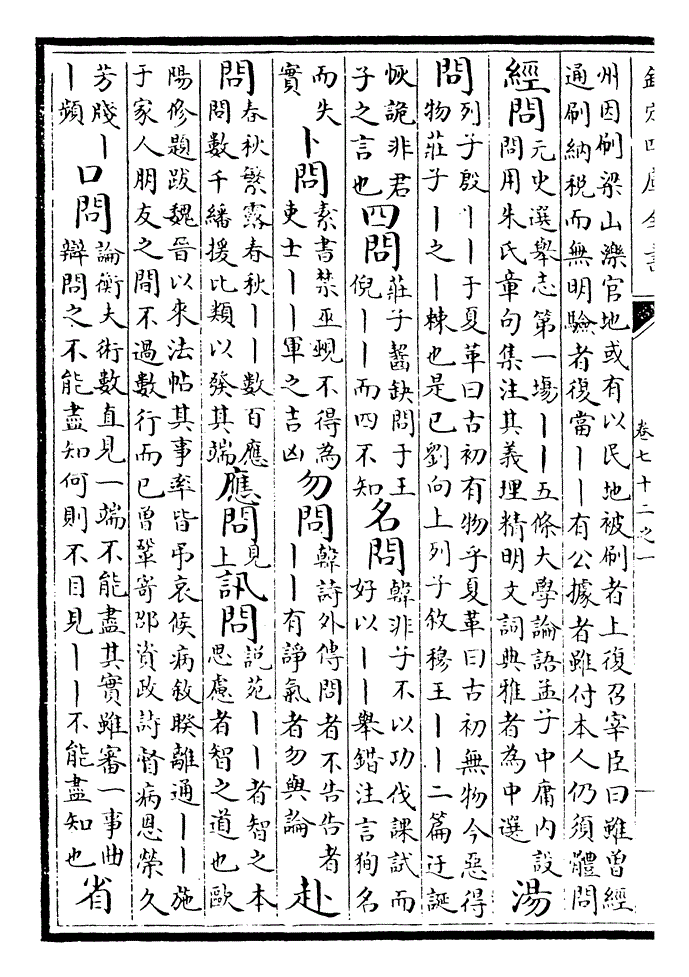 欽定四庫全書
卷七十二之一
州因刷梁山濼官地或有以民地被刷者上復召宰臣曰雖曾經
通刷納稅而無明驗者復當丨丨有公據者雖付本人仍須體問
經問
元史選舉志第一場丨丨五條大學論語孟子中庸內設
問用朱氏章句集注其義理精明文詞典雅者為中選
湯
問
列子殷丨丨于夏革曰古初有物乎夏革曰古初無物今惡得
物莊子丨之丨棘也是已劉向上列子敘穆王丨丨二篇迂誕
恢詭非君
子之言也
四問
莊子齧缺問于王
倪丨丨而四不知
名問
韓非子不以功伐課試而
好以丨丨舉錯注言狥名
而失
實
卜問
素書禁巫覡不得為
吏士丨丨軍之吉凶
勿問
韓詩外傳問者不告告者
丨丨有諍氣者勿與論
赴
問
春秋繁露春秋丨丨數百應
問數千繙援比類以發其端
應問
見
上
訊問
説苑丨丨者智之本
思慮者智之道也歐
陽修題跋魏晉以來法帖其事率皆弔哀候病敘睽離通丨丨施
于家人朋友之間不過數行而已曾鞏寄邵資政詩督病恩榮久
芳牋丨
丨頻
口問
論衡夫術數直見一端不能盡其實雖審一事曲
辯問之不能盡知何則不目見丨丨不能盡知也
省